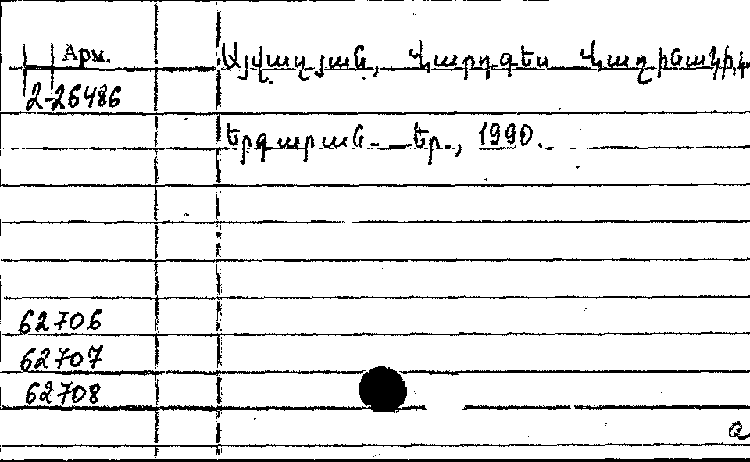 Арм.
Այվազյան, Վարդգես Վաղինակի
2-26486
Երգարան. _ Եր., 1990.
62706
62707
62708
a